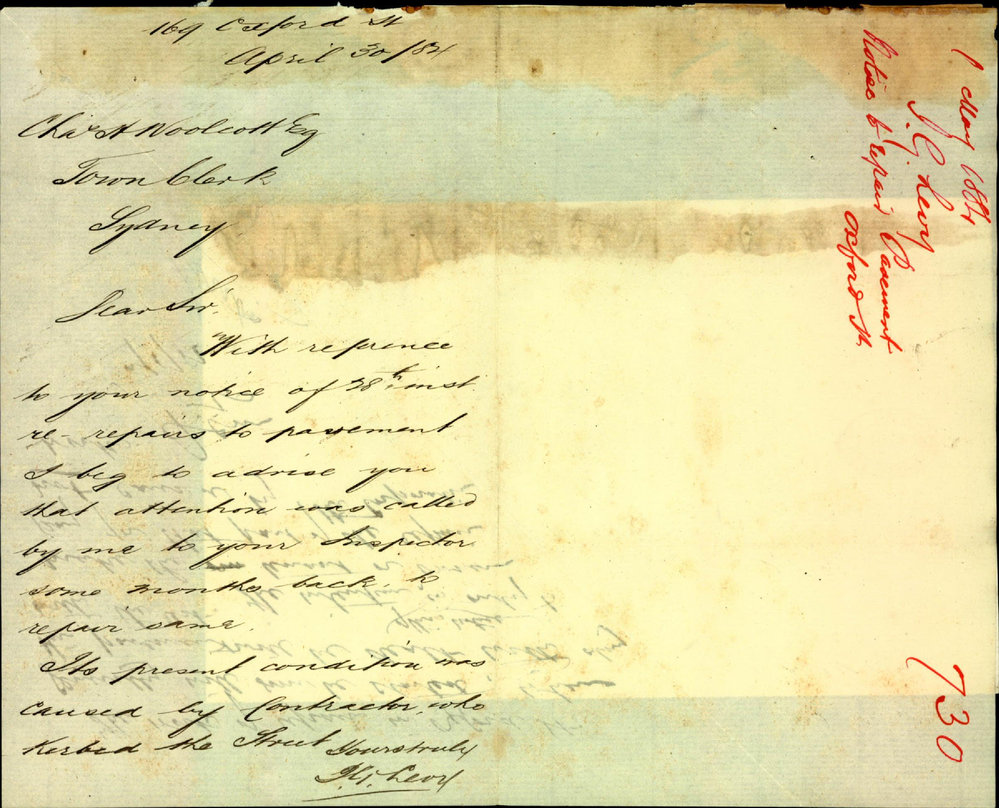 169 Oxford St
April 30/84
Chas H Woolcott Esq
Town Clerk
Sydney.
Dear Sir.
With refrence
to your notice of 28th inst
re repairs to pavement
I beg to advise you
that attention was called
by me to your Inspector
some months back, to
repair same.
Its present condition was
caused by Contractor, who
Kerbed the Street
Yours truly
Levy
1 May 1884
J. G. Levy
Notice to repair Pavement
Oxford St
730